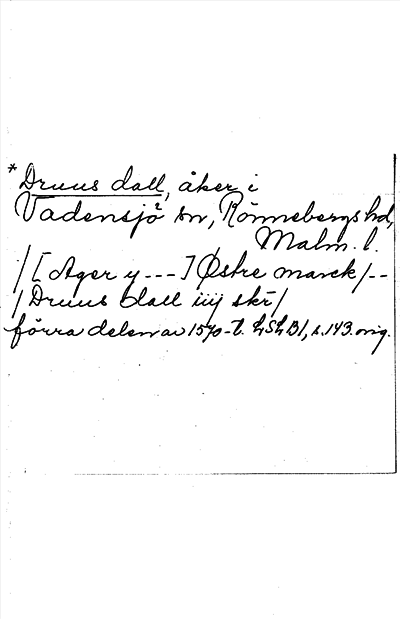 *Druus dall, åker i
Vadensjö sn, Rönnebergs hd,
Malm. l.
/[Ager y ---] Østre marck/--
/Druus dall iiij skr/
förra delen av 1570-t. LSLB1, s.143. orig.